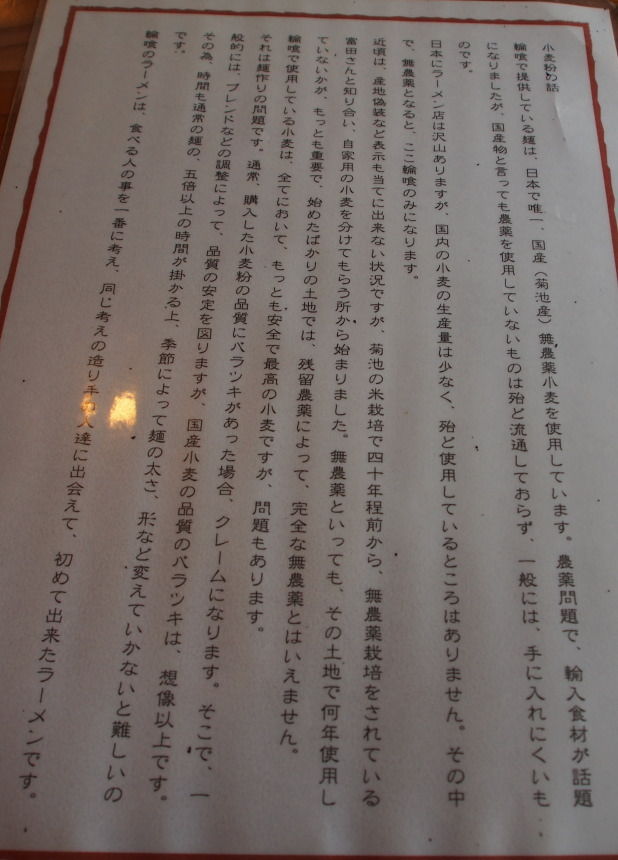 小麦粉の話
輪喰で提供している麺は、日本で唯一、国産（菊池産）無農薬小麦を使用しています。農薬問題で、輸入食材が話題
になりましたが、国産物と言っても農薬を使用していないものは殆ど流通しておらず、一般には、手に入れにくいも
のです。
日本にラーメン店は沢山ありますが、国内の小麦の生産量は少なく、殆ど使用しているところはありません。その中
で、無農薬となると、ここ輪喰のみになります。
近頃は、産地偽装など表示も当てに出来ない状況ですが、菊池の米栽培で四十年程前から、無農薬栽培をされている
富田さんと知り合い、自家用の小麦を分けてもらう所から始まりました。無農薬といっても、その土地で何年使用し
ていないかが、もっとも重要で、始めたばかりの土地では、残留農薬によって、完全な無農薬とはいえません。
輪喰で使用している小麦は、全てにおいて、もっとも安全で最高の小麦ですが、問題もあります。
それは麺作りの問題です。通常、購入した小麦粉の品質にバラツキがあった場合、クレームになります。そこで、一
般的には、ブレンドなどの調整によって、品質の安定を図りますが、国産小麦の品質のバラツキは、想像以上です。
その為、時間も通常の麺の、五倍以上の時間が掛かる上、季節によって麺の太さ、形など変えていかないと難しいの
です。
輪喰のラーメンは、食べる人の事を一番に考え、同じ考えの造り手の人達に出会えて、初めて出来たラーメンです。